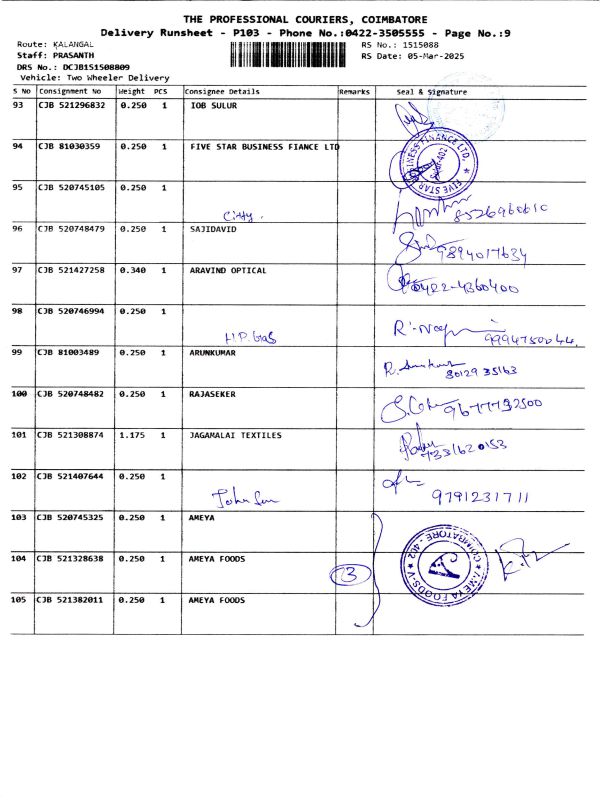 THE PROFESSIONAL COURIERS, COIMBATORE
Delivery Runsheet - P103 - Phone No.:0422-3505555 - Page No.:9
Route: KALANGAL
RS No.: 1515088
Staff: PRASANTH
RS Date: 05-Mar-2025
DRS No.: DCJB151508809
Vehicle: Two Wheeler Delivery
S No Consignment No Weight PCS Consignee Details Remarks Seal & Signature
93 CJB 521296832 0.250 1 IOB SULUR
94 CJB 81030359 0.250 1 FIVE STAR BUSINESS FIANCE LTD
95 CJB 520745105 0.250 1
8526960610
96 CJB 520748479 0.250 1 SAJIDAVID
9894017634
97 CJB 521427258 0.340 1 ARAVIND OPTICAL
0422-4360400
98 CJB 520746994 0.250 1
H.P. Gas
9994750044.
99 CJB 81003489 0.250 1 ARUNKUMAR
80129 35163
100 CJB 520748482 0.250 1 RAJASEKER
9677792500
101 CJB 521308874 1.175 1 JAGAMALAI TEXTILES
7331620153
102 CJB 521407644 0.250 1
9791231711
103 CJB 520745325 0.250 1 AMEYA
104 CJB 521328638 0.250 1 AMEYA FOODS
3
COIMBATORE - 402
105 CJB 521382011 0.250 1 AMEYA FOODS